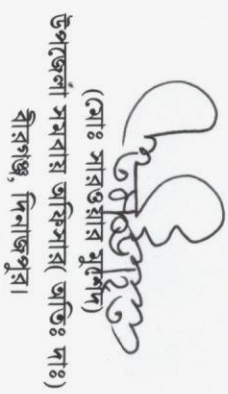 (মোঃ সারওয়ার মুর্শেদ)
উপজেলা সমবায় অফিসার( অতিঃ দাঃ)
বীরগঞ্জ, দিনাজপুর।